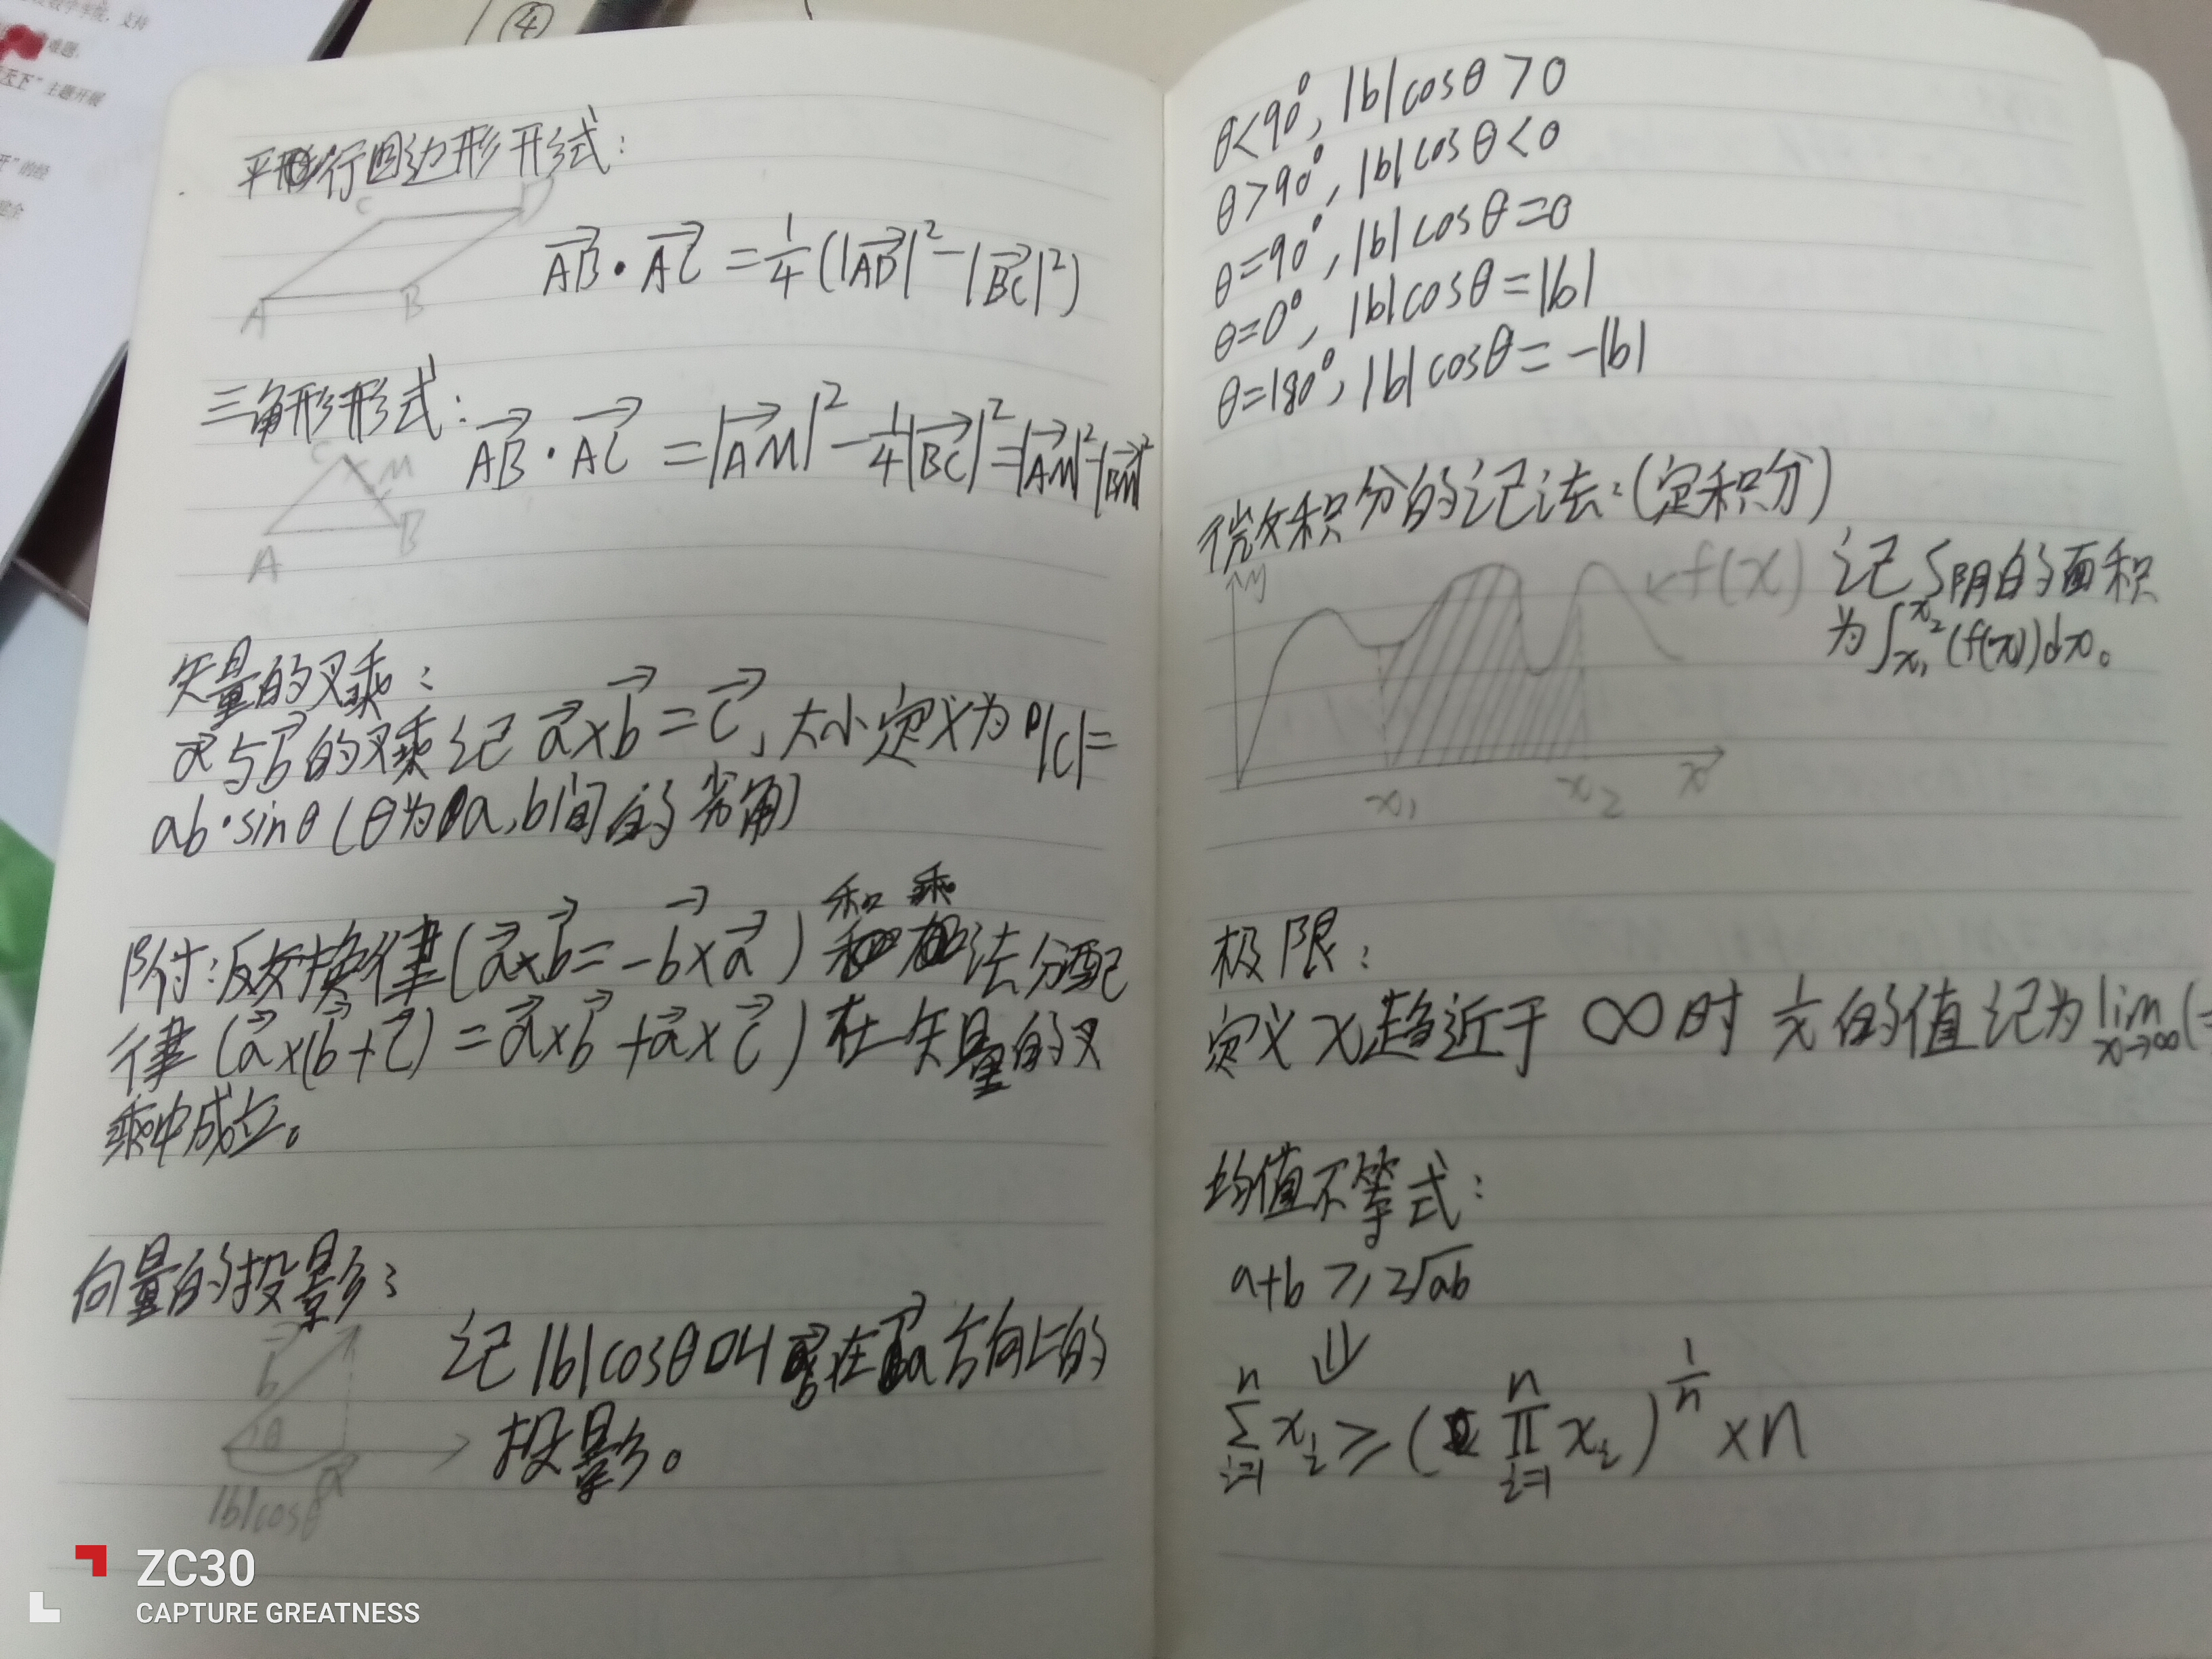 ④
数学专题，支持
难题.
天下"主题开展
开"的经
平行四边形形式：
C D
A B
AB·AC = 1/4(|AD|²-|BC|²)
三角形形式：
AB·AC = |AM|²-1/4|BC|²=|AM|²-|BM|²
C M
A B
矢量的叉乘：
a与b的叉乘记 a×b=c，大小定义为|c|=
ab·sinθ(θ为a,b间的劣角)
附：反交换律(a×b=-b×a)和乘法分配
律(a×(b+c)=a×b+a×c)在矢量的叉
乘中成立。
向量的投影：
记|b|cosθ叫b在a方向上的
投影。
b
θ
a
|b|cosθ
θ<90°, |b|cosθ>0
θ>90°, |b|cosθ<0
θ=90°, |b|cosθ=0
θ=0°, |b|cosθ=|b|
θ=180°, |b|cosθ=-|b|
微积分的记法：(定积分)
y
f(x)
记S阴的面积
为∫x₁x₂(f(x))dx。
x₁ x₂ x
极限：
定义x趋近于∞时 1/x的值记为lim x→∞(
均值不等式：
a+b≥2√ab
⇓
n∑i=1 xi≥(n∏i=1 xi)^1/n×n
ZC30
CAPTURE GREATNESS